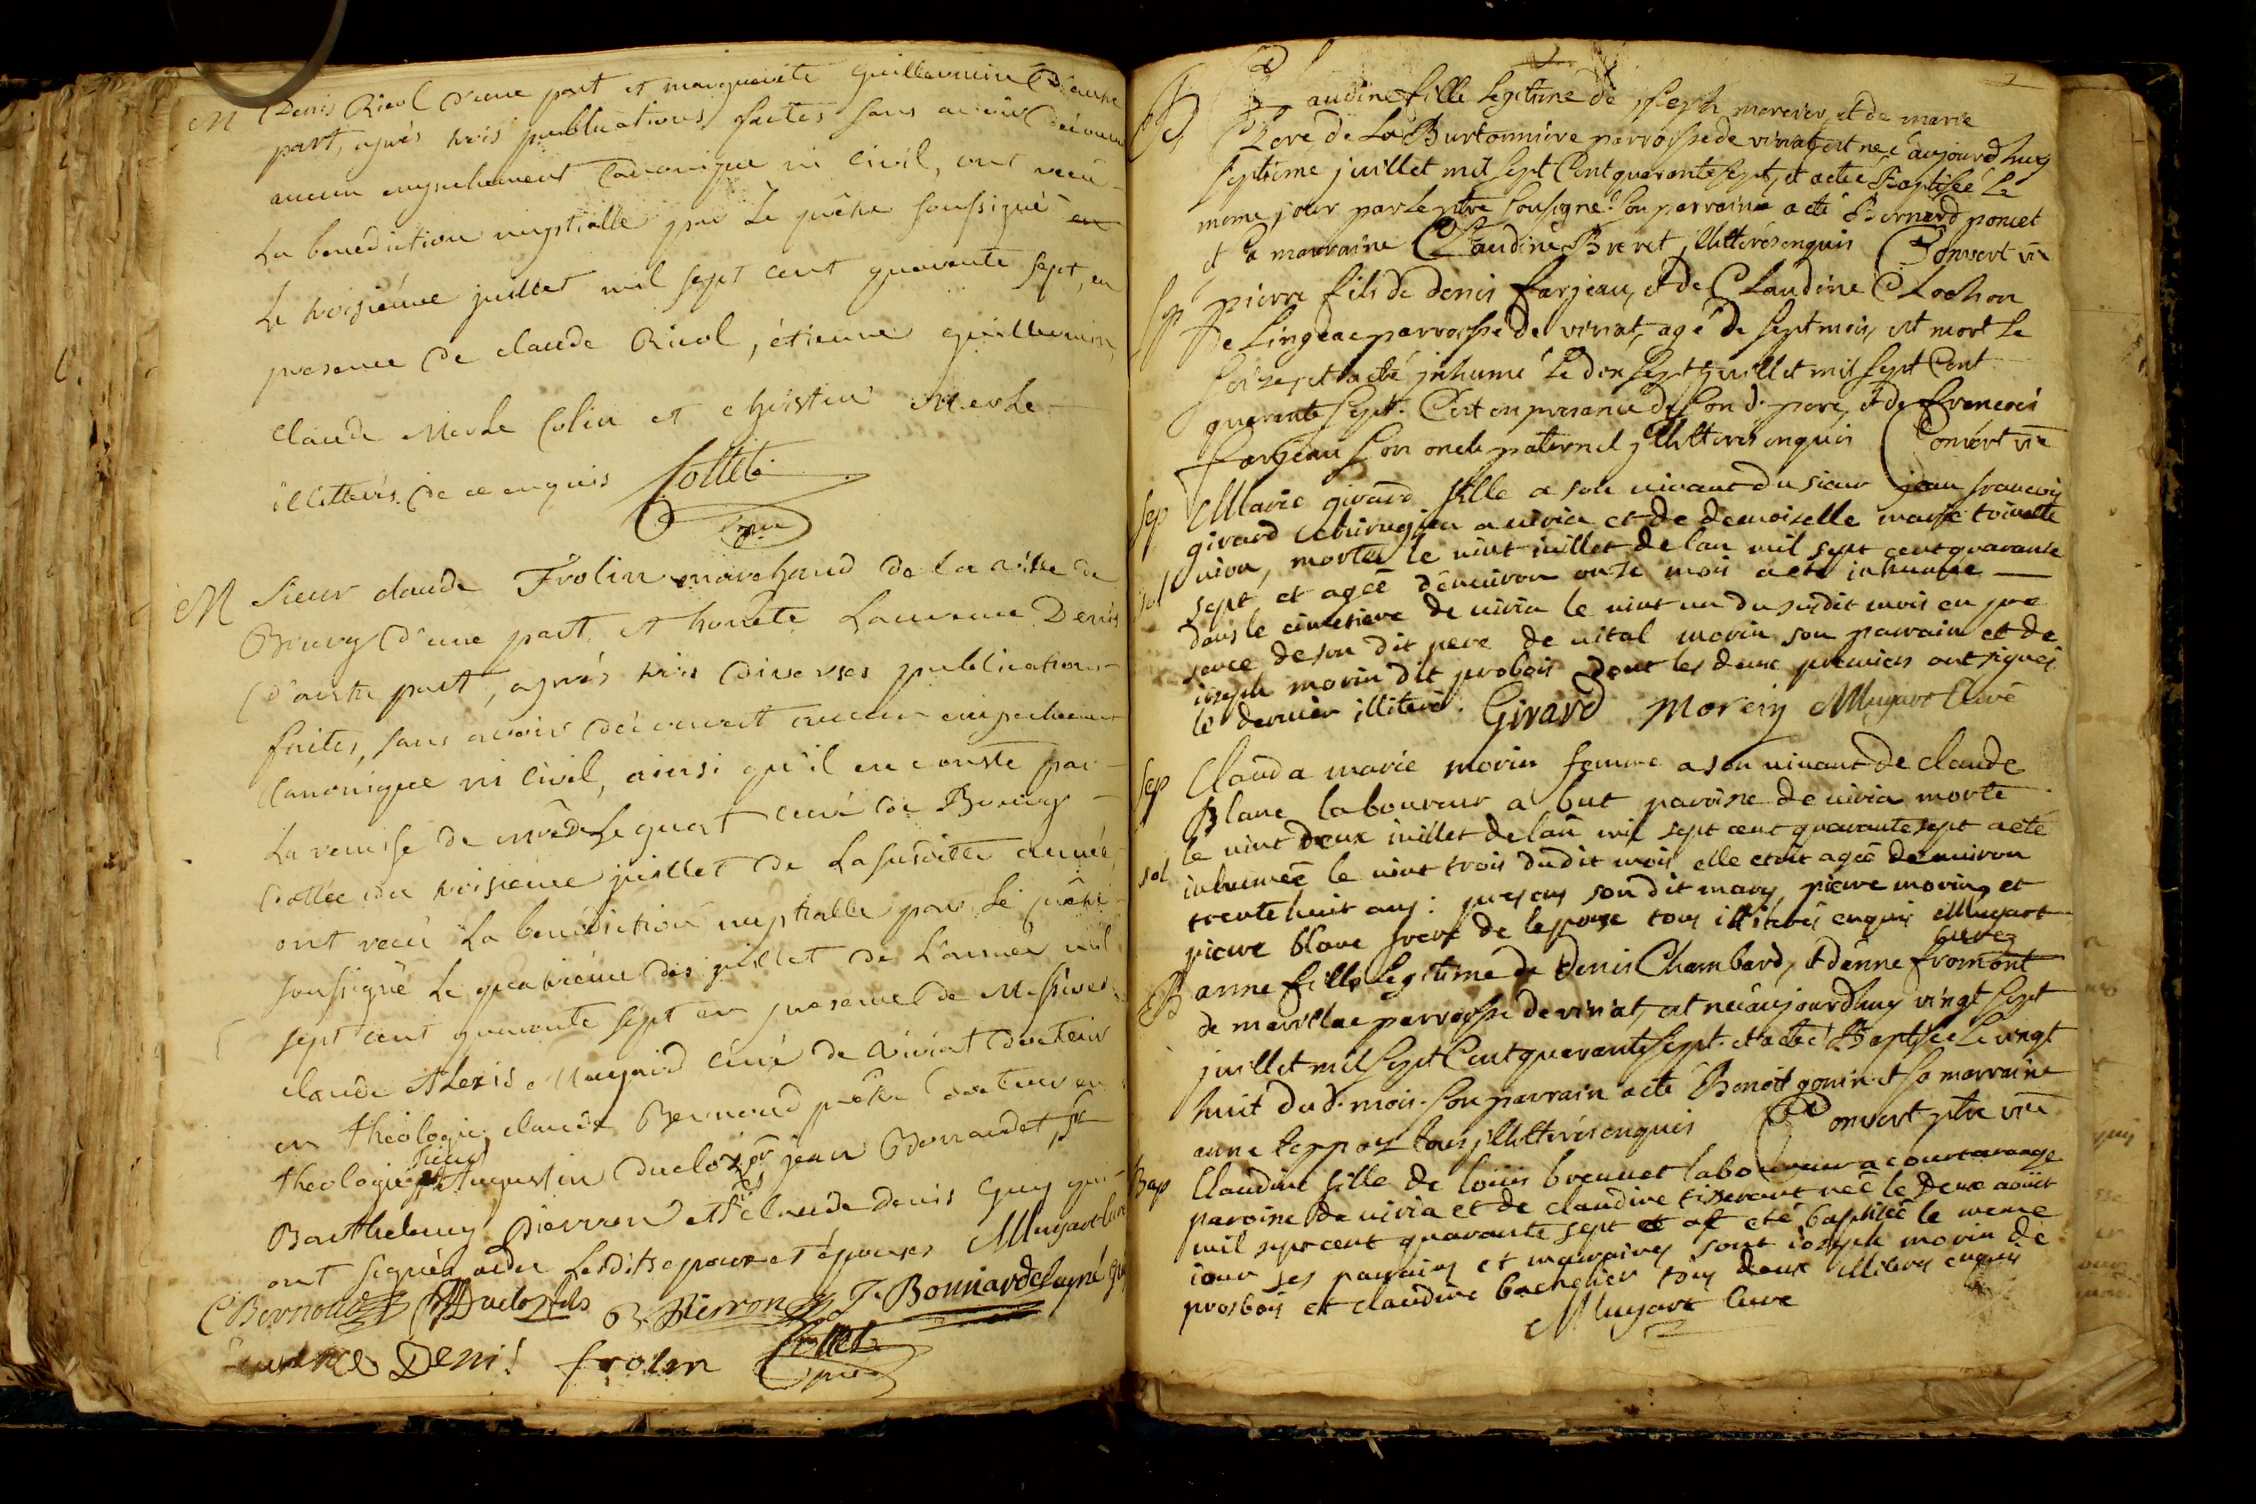 M Denis Ricol d'une part et marguerite guillermin d'autre
part, après trois publications faites sans avoir découvert
aucun empechement canonique ni civil, ont recû
La benediction nuptialle par Le prêtre soussigné
Le troisiéme juillet mil sept cent quarante sept, en
presence de claude Ricol, étienne guillermin,
claude Merle Colin et christin Merle
illitterés de ce enquis Collet
M Sieur claude Frolin marchand de la ville de
Bourg d'une part et honête Laurence Denis
d'autre part, après trois diverses publications
faites, sans avoir découvert aucun empechement
Canonique ni civil, ainsi qu'il en conste par
La remise de mre Leguat curé de Bourg
dattée du troisiéme juillet de La susditte année,
ont recû La benediction nuptialle par Le prêtre
soussigné Le quatriéme des juillet de L'année mil
sept cent quarante sept en presence de Messires
claude Alexis Muyard curé de Viriat docteur
en théologie, claude Bernoud prêtre docteur en
theologie, sieur Augustin Duclos, sr jean Bonnardet, sr
Barthelemy Pierron et sr claude denis Guy qui
ont signés avec Lesdits epoux et épouses Muyart curé
C Bernoud Duclos fils B. Pierron J. Bonnardel
Laurence Deni! frolin Collet
B Claudine fille Legitime de joseph mercier, et de marie
Pere de La Burtonniere parroisse de viriat est neé aujourd huy
septieme juillet mil sept Cent quarante sept, et aeteé Baptiseé Le
meme jour par le ptre sousigné. Son parrain a eté Bernard poncet
et La marraine Claudine Brevet, jllitterés enquis Convert vic
Sep pierre fils de denis farjeau, et de Claudine Clochon
de Lingeat parroisse de viriat, agé de sept mois, est mort le
seize, et a eté jnhumé Le dix sept juillet mil sept Cent
quarante sept. C'est en presance de son d. pere, et de francois
farjeau son oncle paternel jllitterés enquis Convert vic
sep Marie girard fille a son vivant du sieur jean francois
girard chirurgien a viria et de demoiselle marie toinette
nivon, morte le vint iuillet de lan mil sept cent quarante
sol sept et ageé denviron onze mois a eté inhumée
dans le cimetiere de viria le vint un du susdit mois en pre
sence de son dit pere de vital morin son parrain et de
joseph morin dit probois dont les deux premiers ont signés
le dernier illiteré. Girard Morein Muyart Curé
sep Clauda marie morin femme a son vivant de claude
Blanc laboureur a but paroisse de viria morte
le vint deux iuillet de lan mil sept cent quarante sept a eté
sol inhumeé le vint trois dudit mois elle etoit ageé denviron
trente huit ans: presens son dit mary, pierre morin, et
pierre blanc frere de lepouse tous illiterés enquis Muyart
curé
B anne fille Legitime de denis Chambard, et danne fromont
de marillac parroisse de viriat, est neé aujourdhuy vingt sept
juillet mil sept Cent quarante sept. et aeteé Baptiseé Le vingt
huit dud. mois. Son parrain a eté Benoit gonin et sa marraine
anne tous jllitterés enquis Convert ptre vic
Bap Claudine fille de louis brevet laboureur a courtarange
paroisse de viria et de claudine tisserant neé le deux aoust
mil sept cent quarante sept et a eté baptiseé le meme
iour ses parrains et marraines sont ioseph morin de
prosbois et claudine bachelier tous deux illiteres enquis
Muyart cure